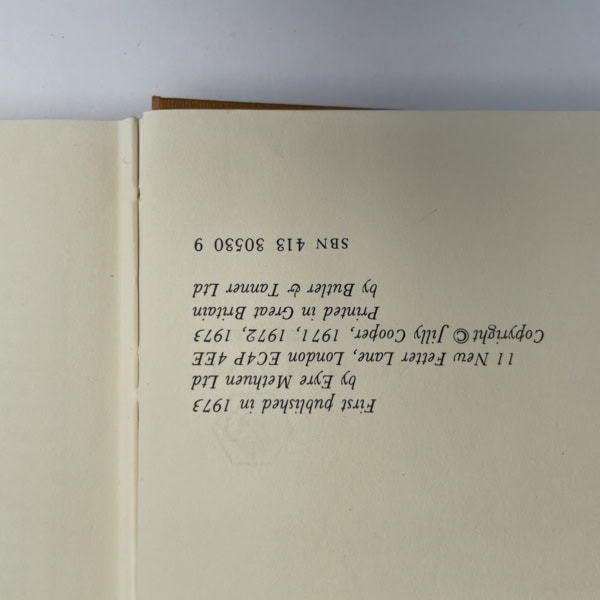 First published in 1973
by Eyre Methuen Ltd
11 New Fetter Lane, London EC4P 4EE
Copyright © Jilly Cooper, 1971, 1972, 1973
Printed in Great Britain
by Butler & Tanner Ltd
SBN 413 30530 9